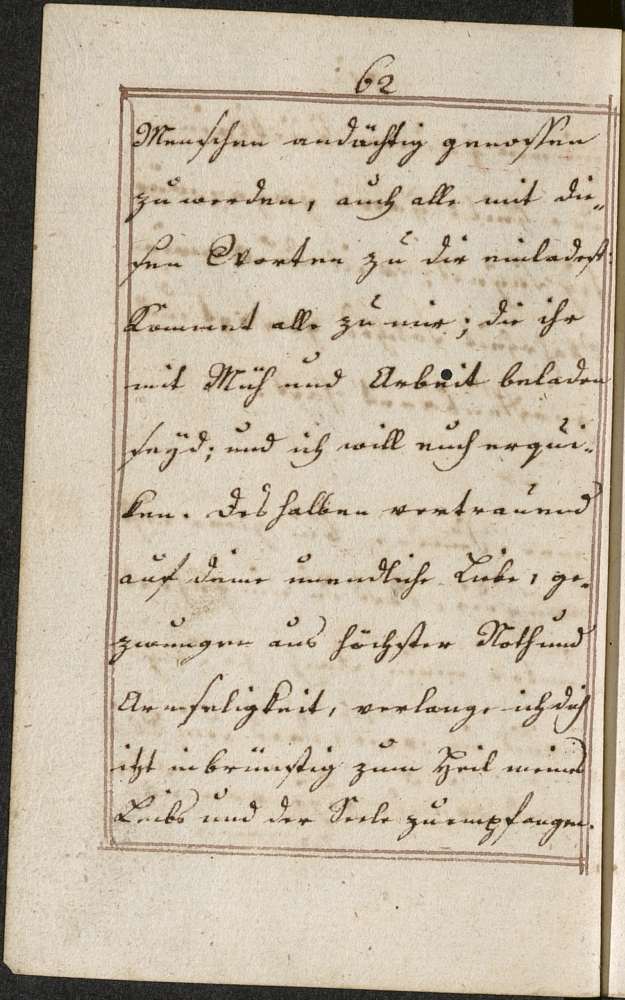 62
Menschen andächtig genossen
zu werden, auch alle mit die„
sen Worten zu dir einladest:
Kommet alle zu mir; die ihr
mit Müh und Arbeit beladen
seyd; und ich will euch erqui„
ken. Deshalben vertrauend
auf deine unendliche Liebe, ge„
zwungen aus höchster Noth und
Armseligkeit, verlange ich dich
itzt inbrünstig zum Heil meines
Leibs und der Seele zu empfangen.